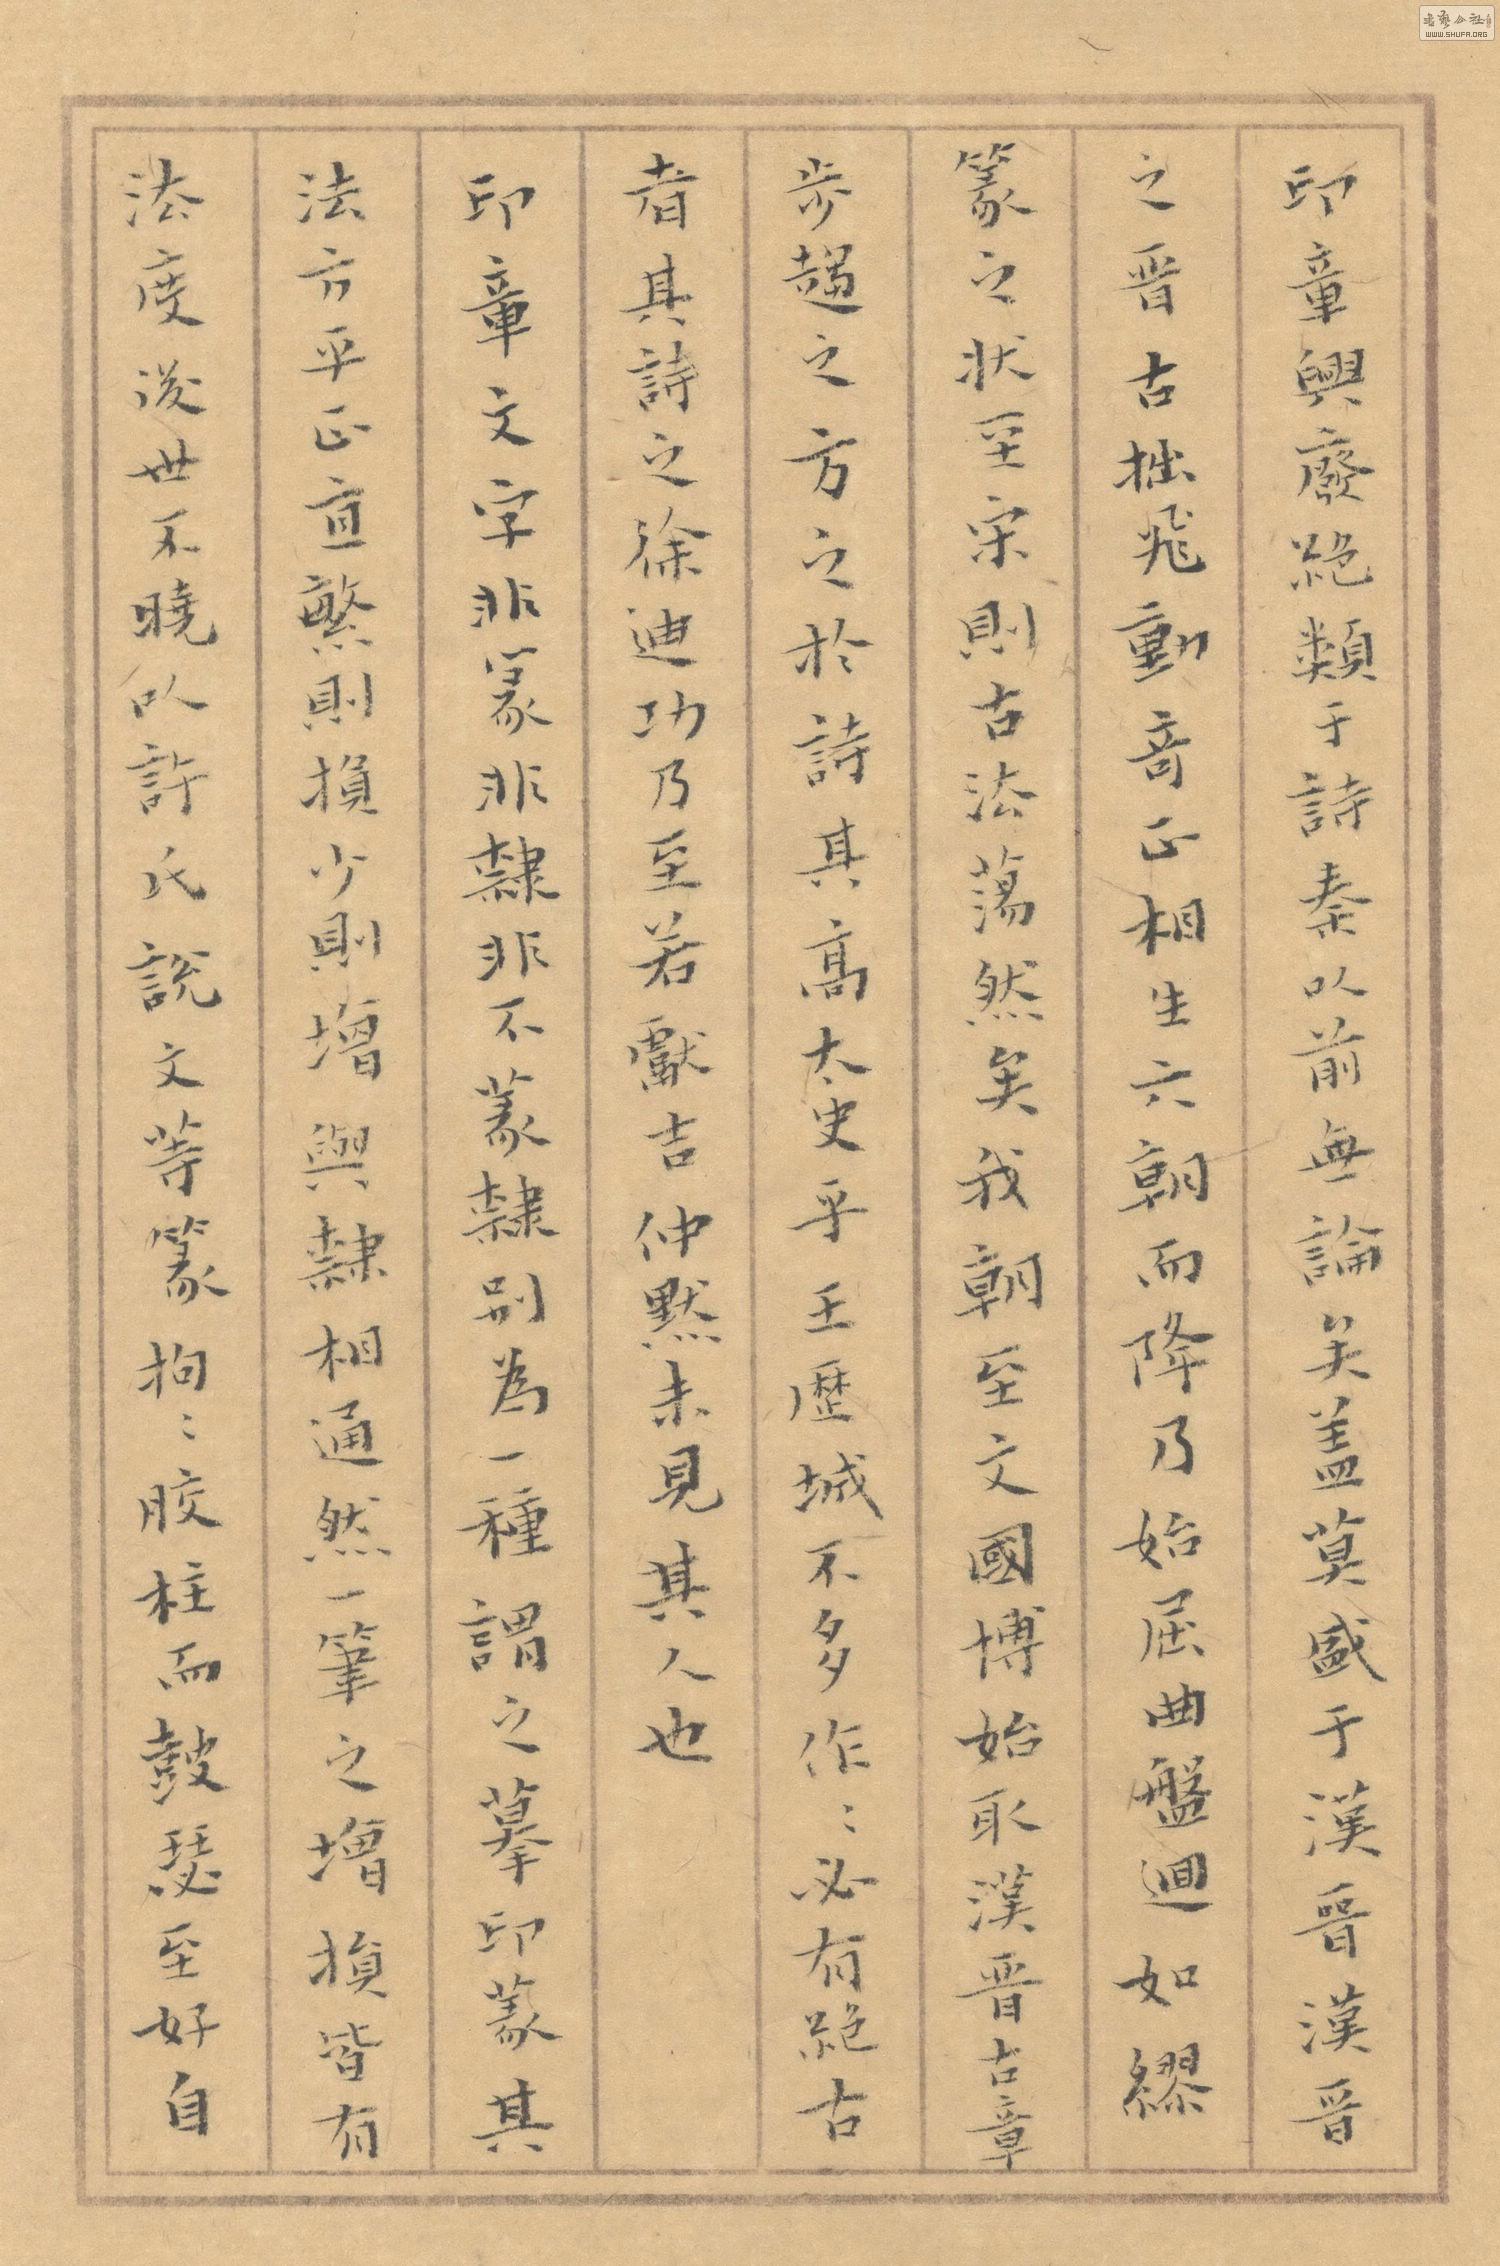 印章興廢絕類于詩秦以前無論矣盖莫盛于漢晉漢晉
之晉古拙飛動奇正相生六朝而降乃始屈曲盤迴如繆
篆之狀至宋則古法蕩然矣我朝至文國博始取漢晉古章
步趨之方之於詩其高太史乎王歷城不多作〻必有絕古
者其詩之徐迪功乃至若獻吉仲默未見其人也
印章文字非篆非隸非不篆隸別為一種謂之摹印篆其
法方平正直繁則損少則增與隸相通然一筆之增損皆有
法度後世不曉以許氏說文等篆拘〻膠柱而鼓瑟至好自
書藝公社
WWW.SHUFA.ORG